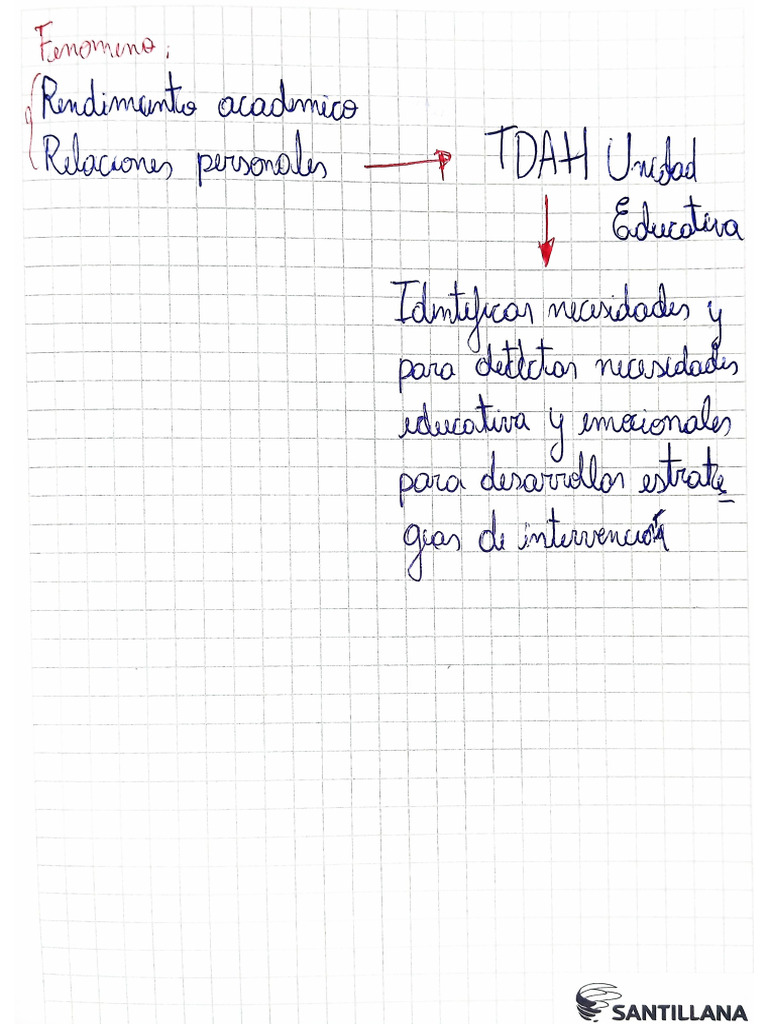 Fenomeno:
Rendimiento academico
Relaciones personales
TDAH Unidad
Educativa
Identificar necesidades y
para detectar necesidades
educativa y emocionales
para desarrollar estrate
gias de intervención
SANTILLANA